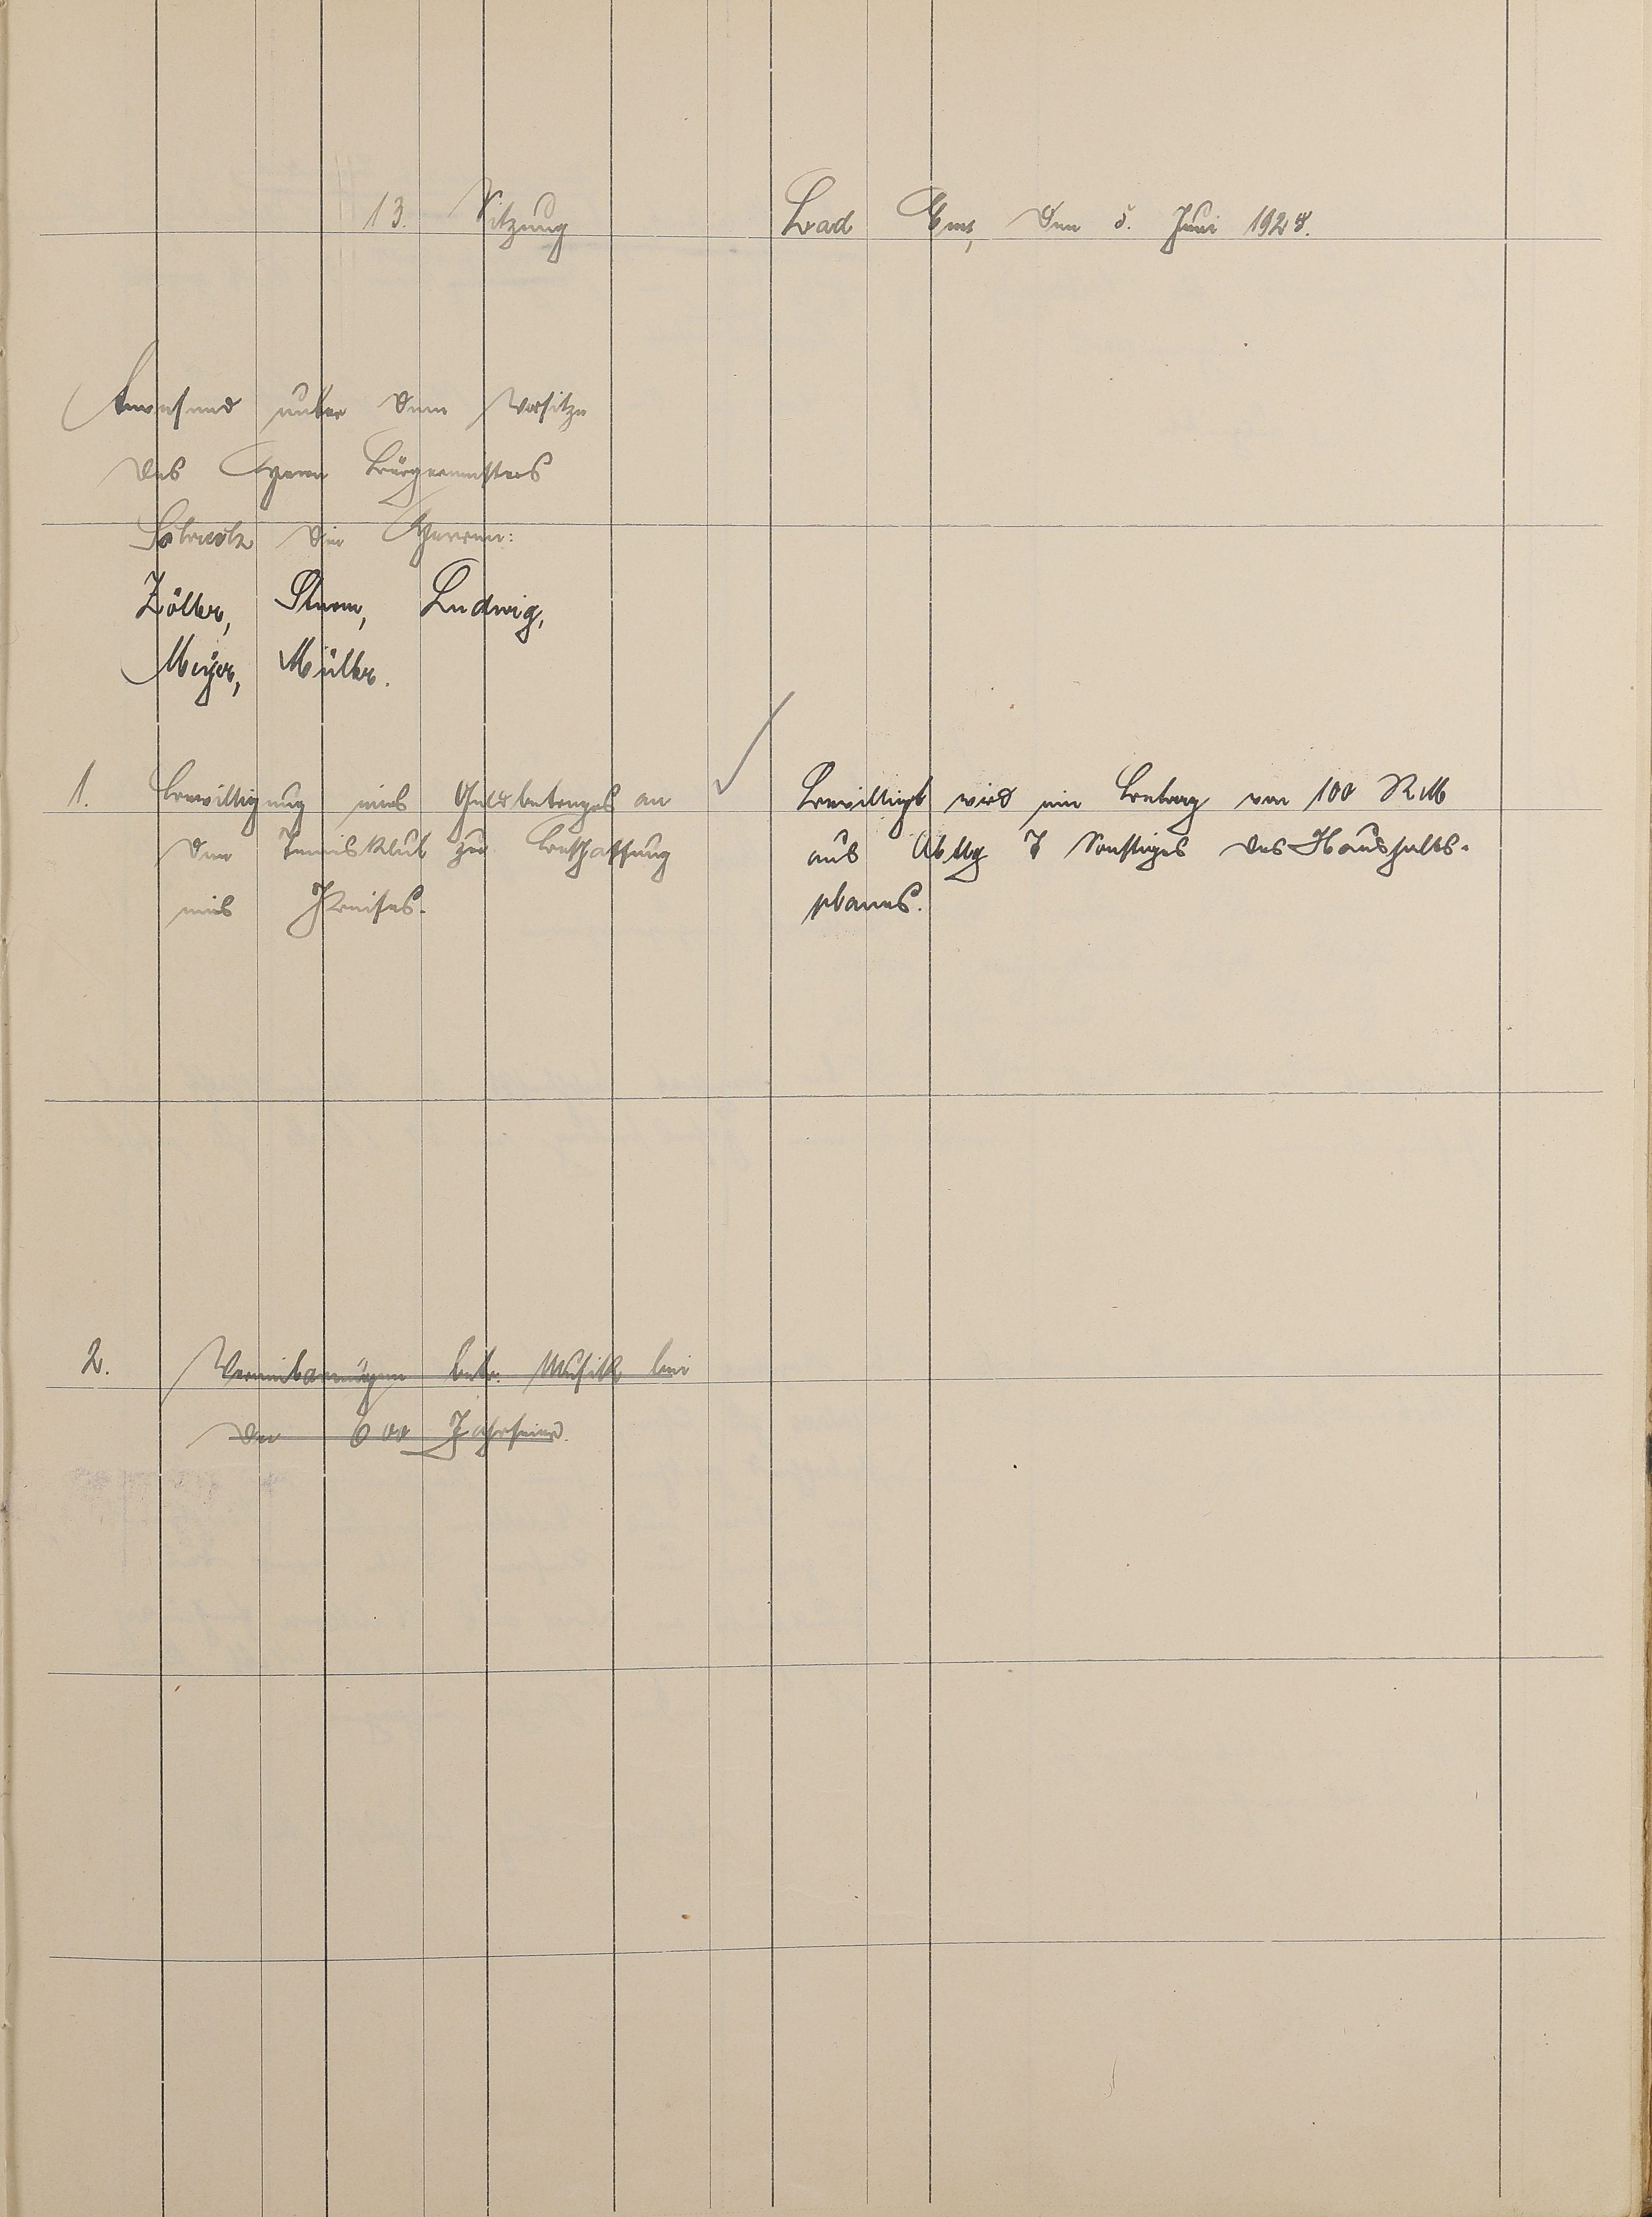 13. Sitzung
Bad Ems, den 5. Juni 1928.
Anwesend unter dem Vorsitze
des Herrn Bürgermeisters
die Herren:
Zöller, Sturm, Ludwig,
Meyer, Müller.
1. Bewilligung eines Geldbetrages an
den Tennisklub zur Beschaffung
eines Preises.
Bewilligt wird ein Betrag von 100 RM
aus Abtlg 7 Sonstiges des Haushalts-
planes.
2. Vereinbarungen betr. Musik bei
der 600 Jahrfeier.